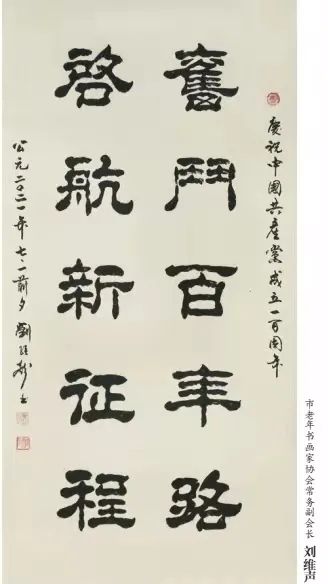 慶祝中國共産黨成立一百周年
奮鬥百年路
啓航新征程
公元二〇二一年七·一前夕 劉維声书
市老年书画家协会常务副会长 刘维声